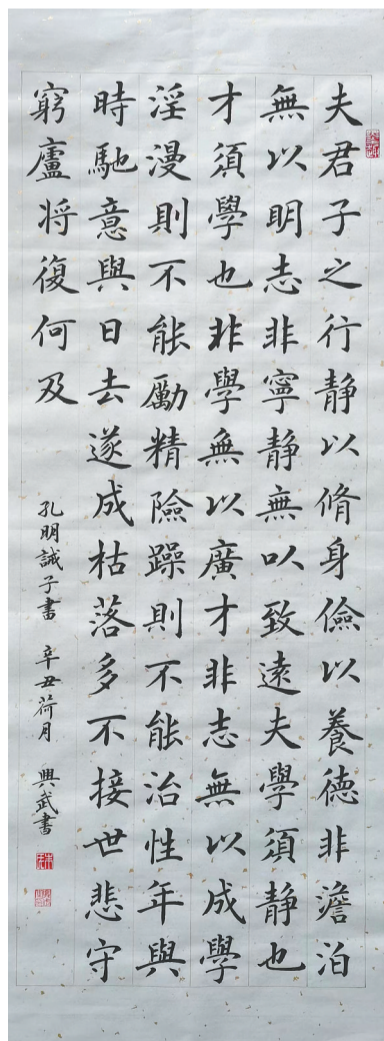 夫君子之行静以脩身儉以養德非澹泊
無以明志非寧静無以致遠夫學須静也
才須學也非學無以廣才非志無以成學
淫漫則不能勵精險躁則不能治性年與
時馳意與日去遂成枯落多不接世悲守
窮廬将復何及
孔明誡子書 辛丑荷月 興武書